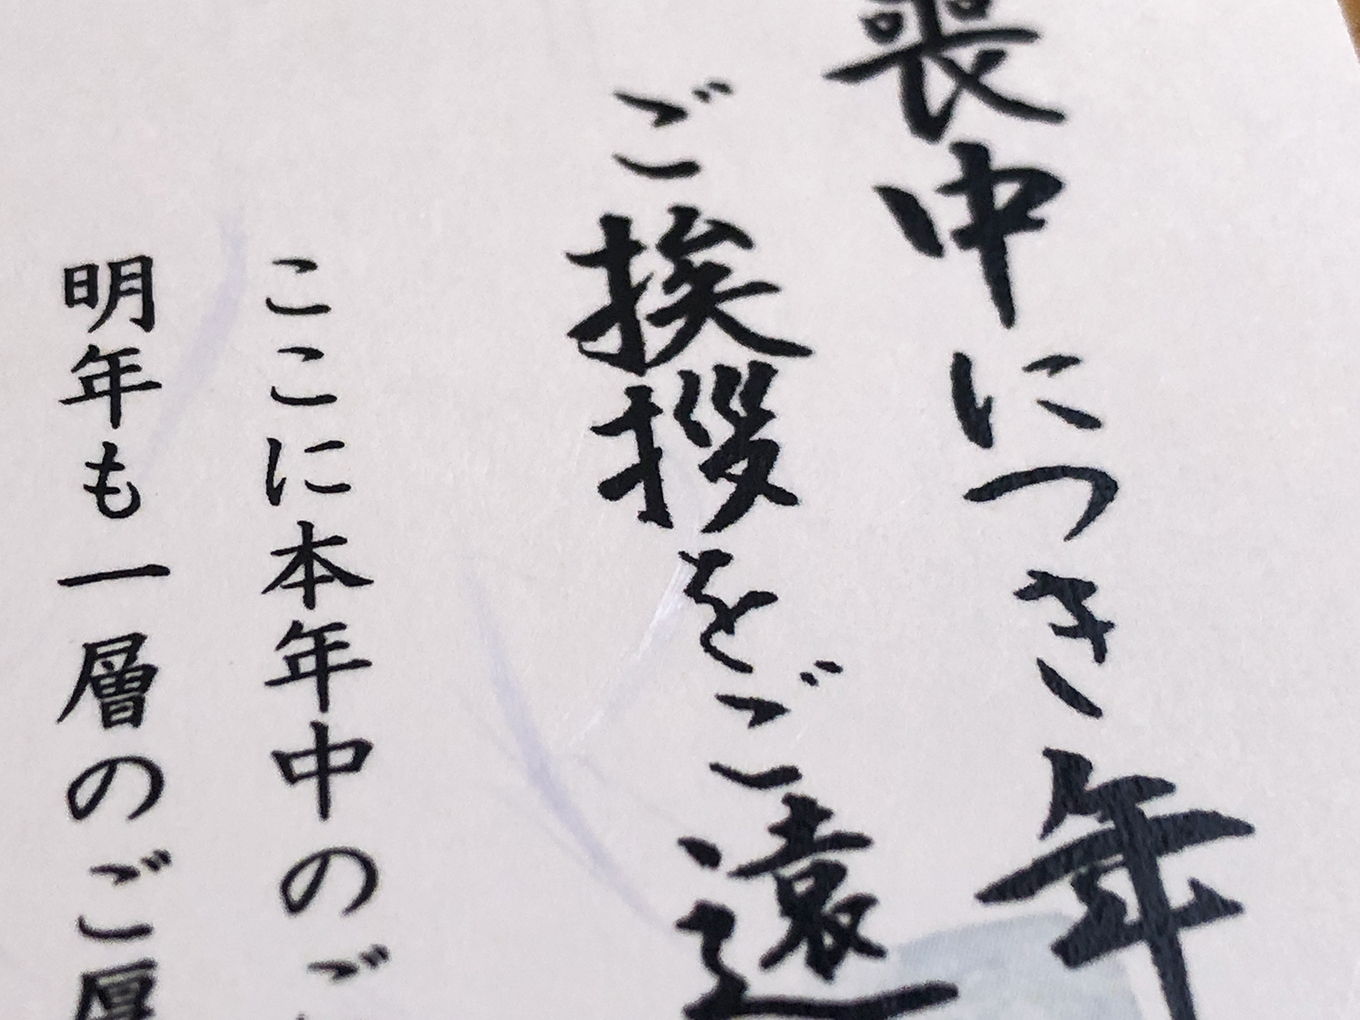 喪中につき年
ご挨拶をご遠
ここに本年中のご
明年も一層のご厚